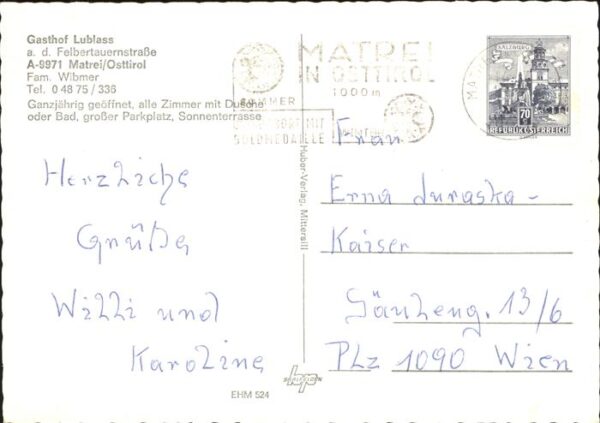 Gasthof Lublass
a. d. Felbertauernstraße
A-9971 Matrei/Osttirol
Fam. Wibmer
Tel. 0 48 75 / 336
Ganzjährig geöffnet, alle Zimmer mit Dusche
oder Bad, großer Parkplatz, Sonnenterrasse
MATREI
IN OSTTIROL
1000 m
SOMMER
GOLDMEDAILLE
WINTER
SALZBURG
70
REPUBLIK ÖSTERREICH
Herzliche
Grüße
Willi und
Karoline
Huber-Verlag, Mittersill
EHM 524
Frau
Erna Juraska-
Kaiser
13/6
PLz 1090 Wien